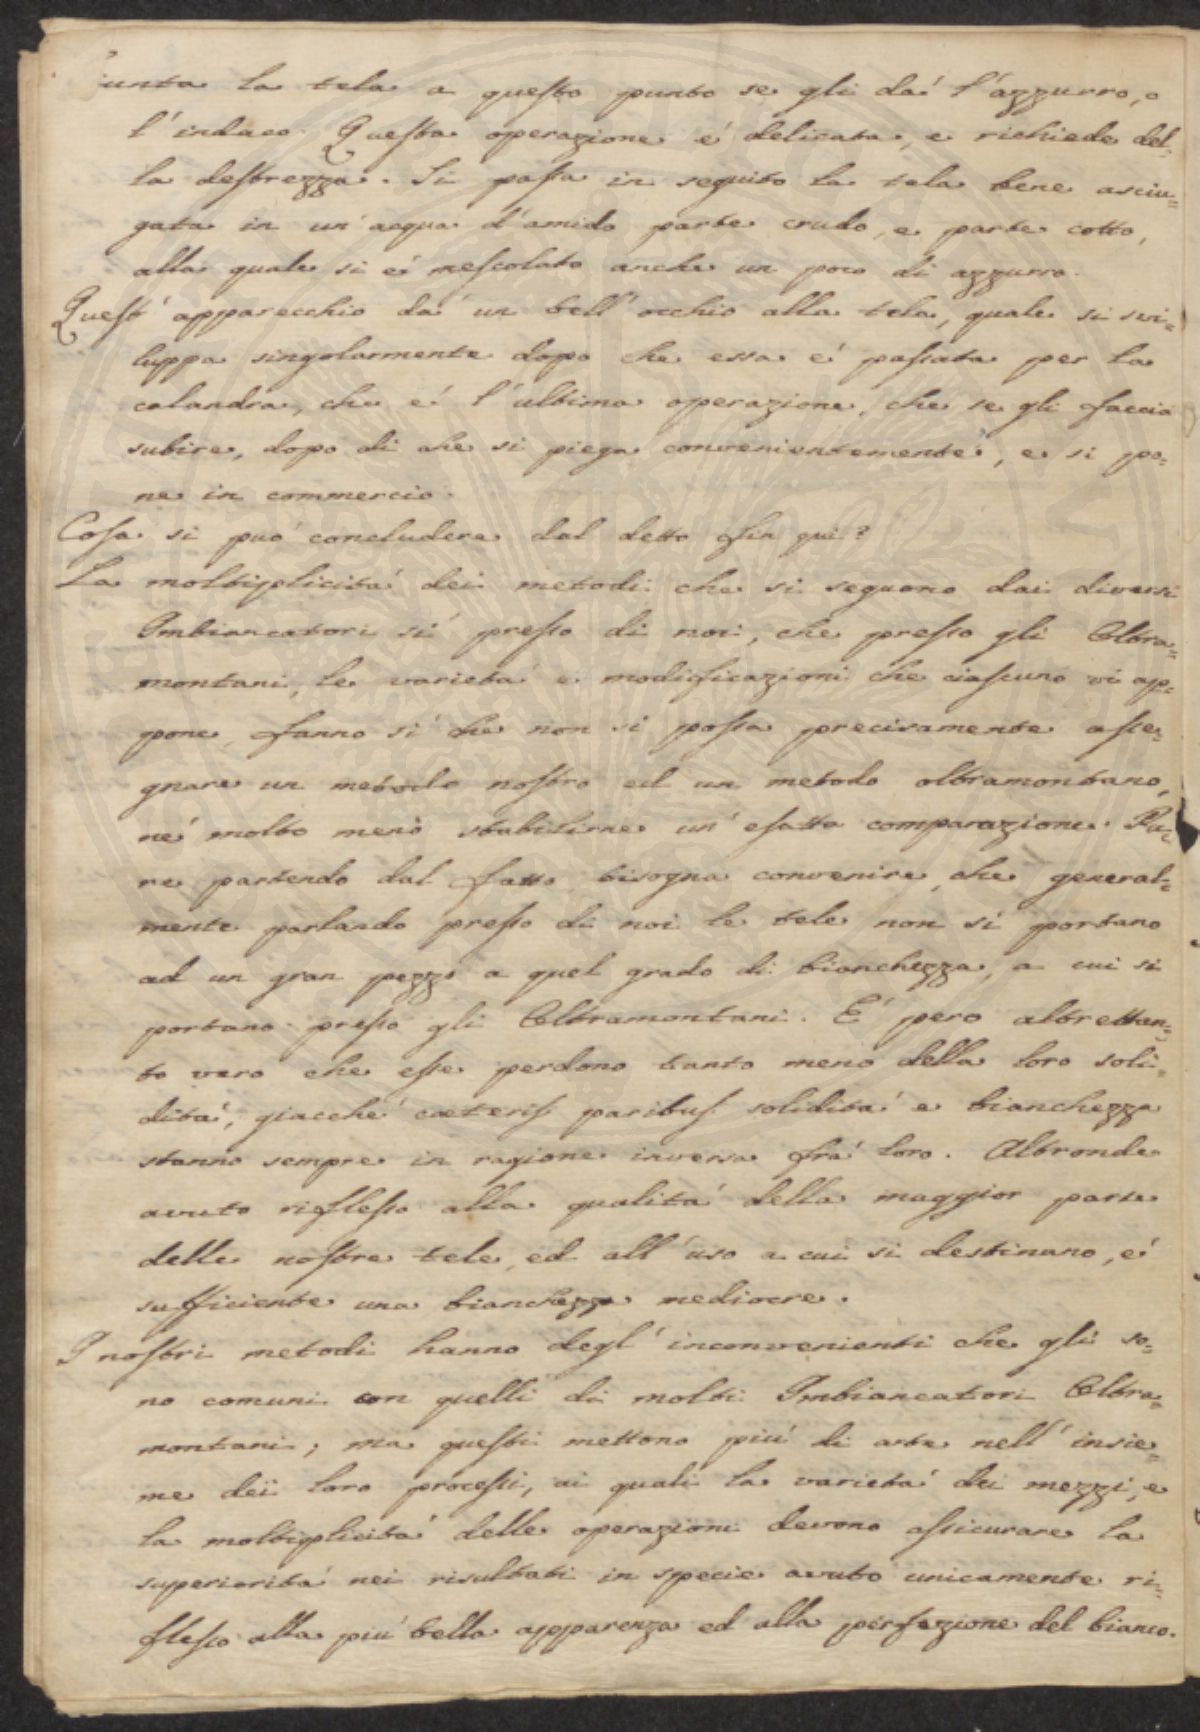 Giunta la tela a questo punto se gli dá l'azzurro, o
l'indaco. Questa operazione é delicata, e richiede del=
la destrezza. Si passa in seguito la tela bene asciu=
gata in un'acqua d'amido parte crudo, e parte cotto,
alla quale si é mescolato anche un poco di azzurro.
Quest'apparecchio dá un bell'occhio alla tela, quale si svi=
luppa singolarmente dopo che essa é passata per la
calandra, che é l'ultima operazione, che se gli faccia
subire, dopo di che si piega convenientemente, e si po=
ne in commercio.
Cosa si puó concludere dal detto fin qui?
La moltiplicitá dei metodi che si seguono dai diversi
Imbiancatori sí presso di noi, che presso gli Oltra=
montani, le varietá e modificazioni che ciascuno vi ap=
pone, fanno sí che non si possa precisamente asse=
gnare un metodo nostro ed un metodo oltramontano,
né molto meno stabilirne un'esatta comparazione. Pu=
re partendo dal fatto bisogna convenire, che general=
mente parlando presso di noi le tele non si portano
ad un gran pezzo a quel grado di bianchezza, a cui si
portano presso gli Oltramontani. É pero altrettan=
to vero che esse perdono tanto meno della loro soli=
ditá, giacché cæteris paribus soliditá e bianchezza
stanno sempre in ragione inversa frá loro. Altronde
avuto riflesso alla qualitá della maggior parte
delle nostre tele, ed all'uso a cui si destinano, é
sufficiente una bianchezza mediocre.
I nostri metodi hanno degl'inconvenienti che gli so=
no comuni con quelli di molti Imbiancatori Oltra=
montani; ma questi mettono piú di arte nell'insie=
me dei loro processi, ai quali la varietá dei mezzi, e
la moltiplicitá delle operazioni devono assicurare la
superioritá nei risultati in specie avuto unicamente ri=
flesso alla piú bella apparenza ed alla perfezione del bianco.